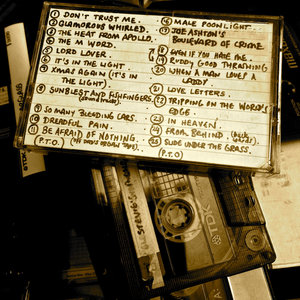 ① DON'T TRUST ME.
② GLAMOROUS WHIRLED.
③ THE HEAT FROM APOLLO.
④ THE M WORD.
⑤ LORD LOVER.
⑥ IT'S IN THE LIGHT
⑦ XMAS AGAIN (IT'S IN THE LIGHT).
⑧ SUNBLEST AND FISHFINGERS.
(soundtrack)
⑨ SO MANY BLEEDING CARS.
⑩ DREADFUL PAIN.
⑪ BE AFRAID OF NOTHING.
(P.T.O)
⑯ MALE POONLIGHT...
⑰ JOE ASHTON'S
BOULEVARD OF CRIME.
⑱ EVEN IF YOU HATE ME.
⑲ RUDDY GOOD THRASHING
⑳ WHEN A MAN LOVES A
LADDY
㉑ LOVE LETTERS.
㉒ TRIPPING ON THE WORLD'S
EDGE.
㉓ IN HEAVEN.
㉔ FROM BEHIND
㉕ SLIDE UNDER THE GRASS.
(P.T.O)
TDK